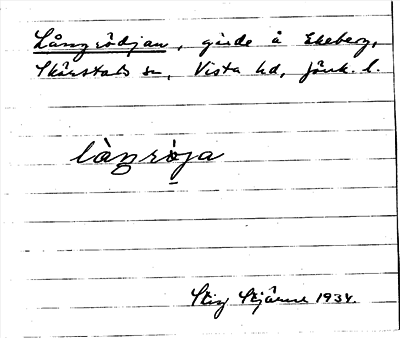 Långrödjan, gärde å Ekeberg,
Skärstads sn, Vista hd, Jönk. l.
làŋrø̀ja
Stig Stjärne 1934.